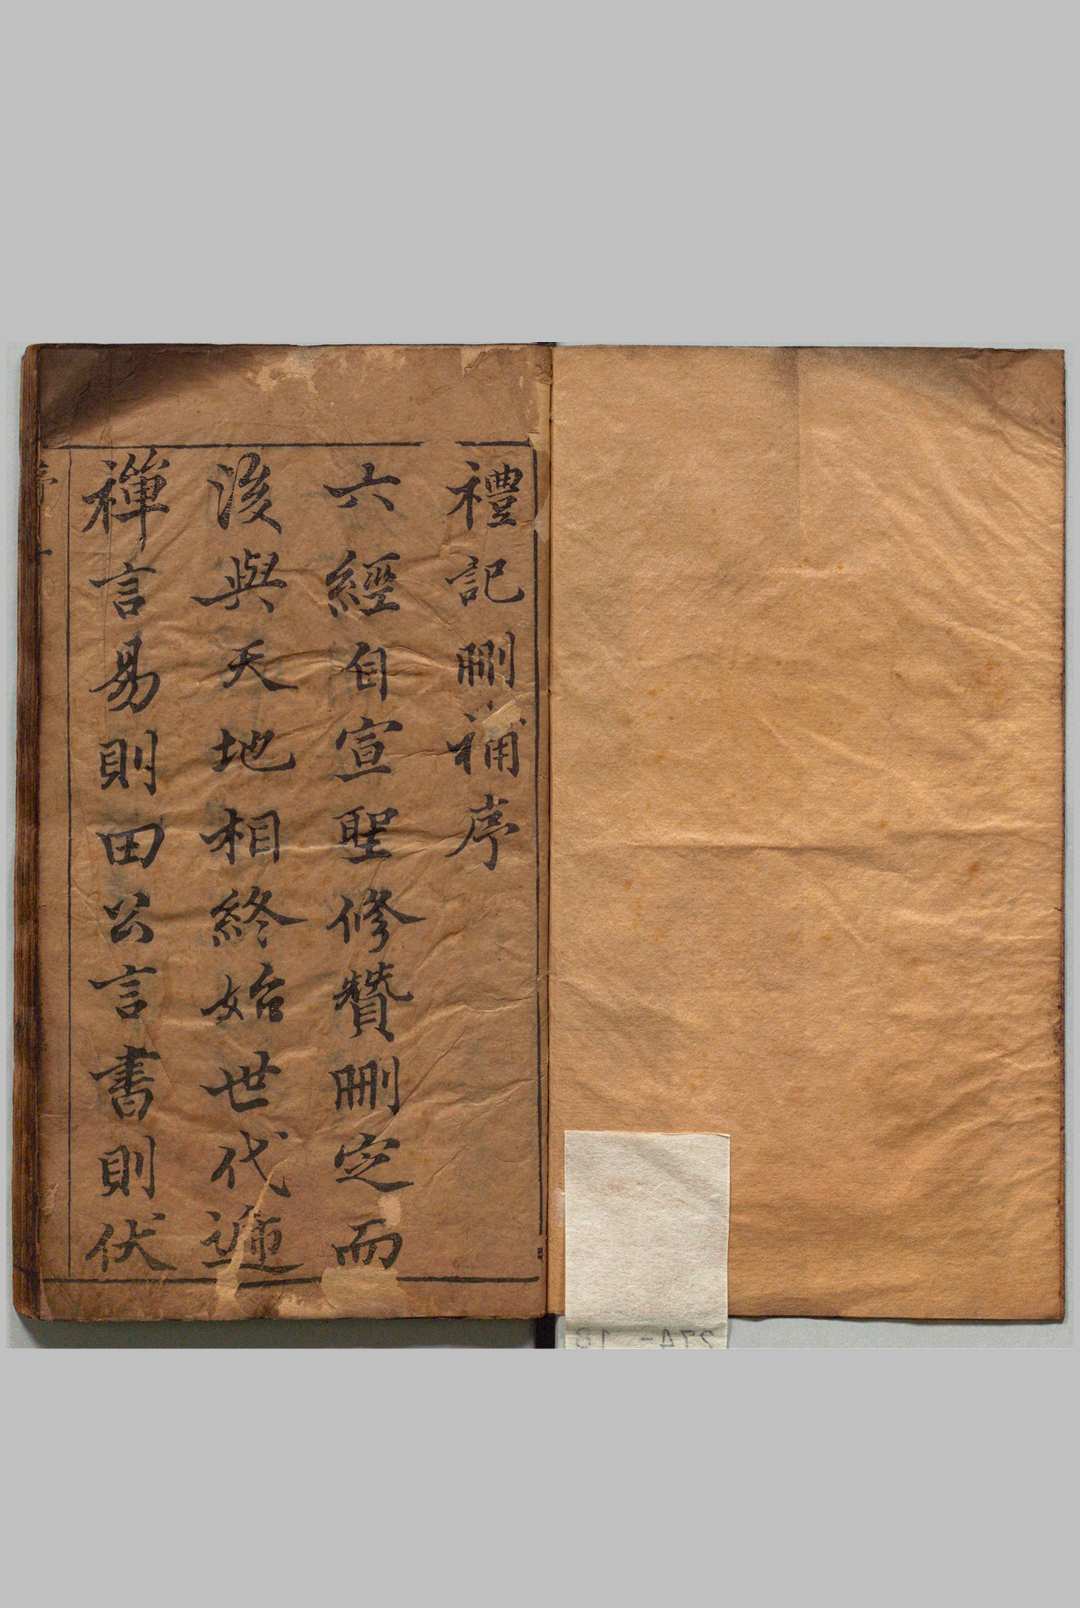 禮記刪補序
六經自宣聖修贊刪定而
後與天地相終始世代遞
禪言易則田公言書則伏
序
274-18